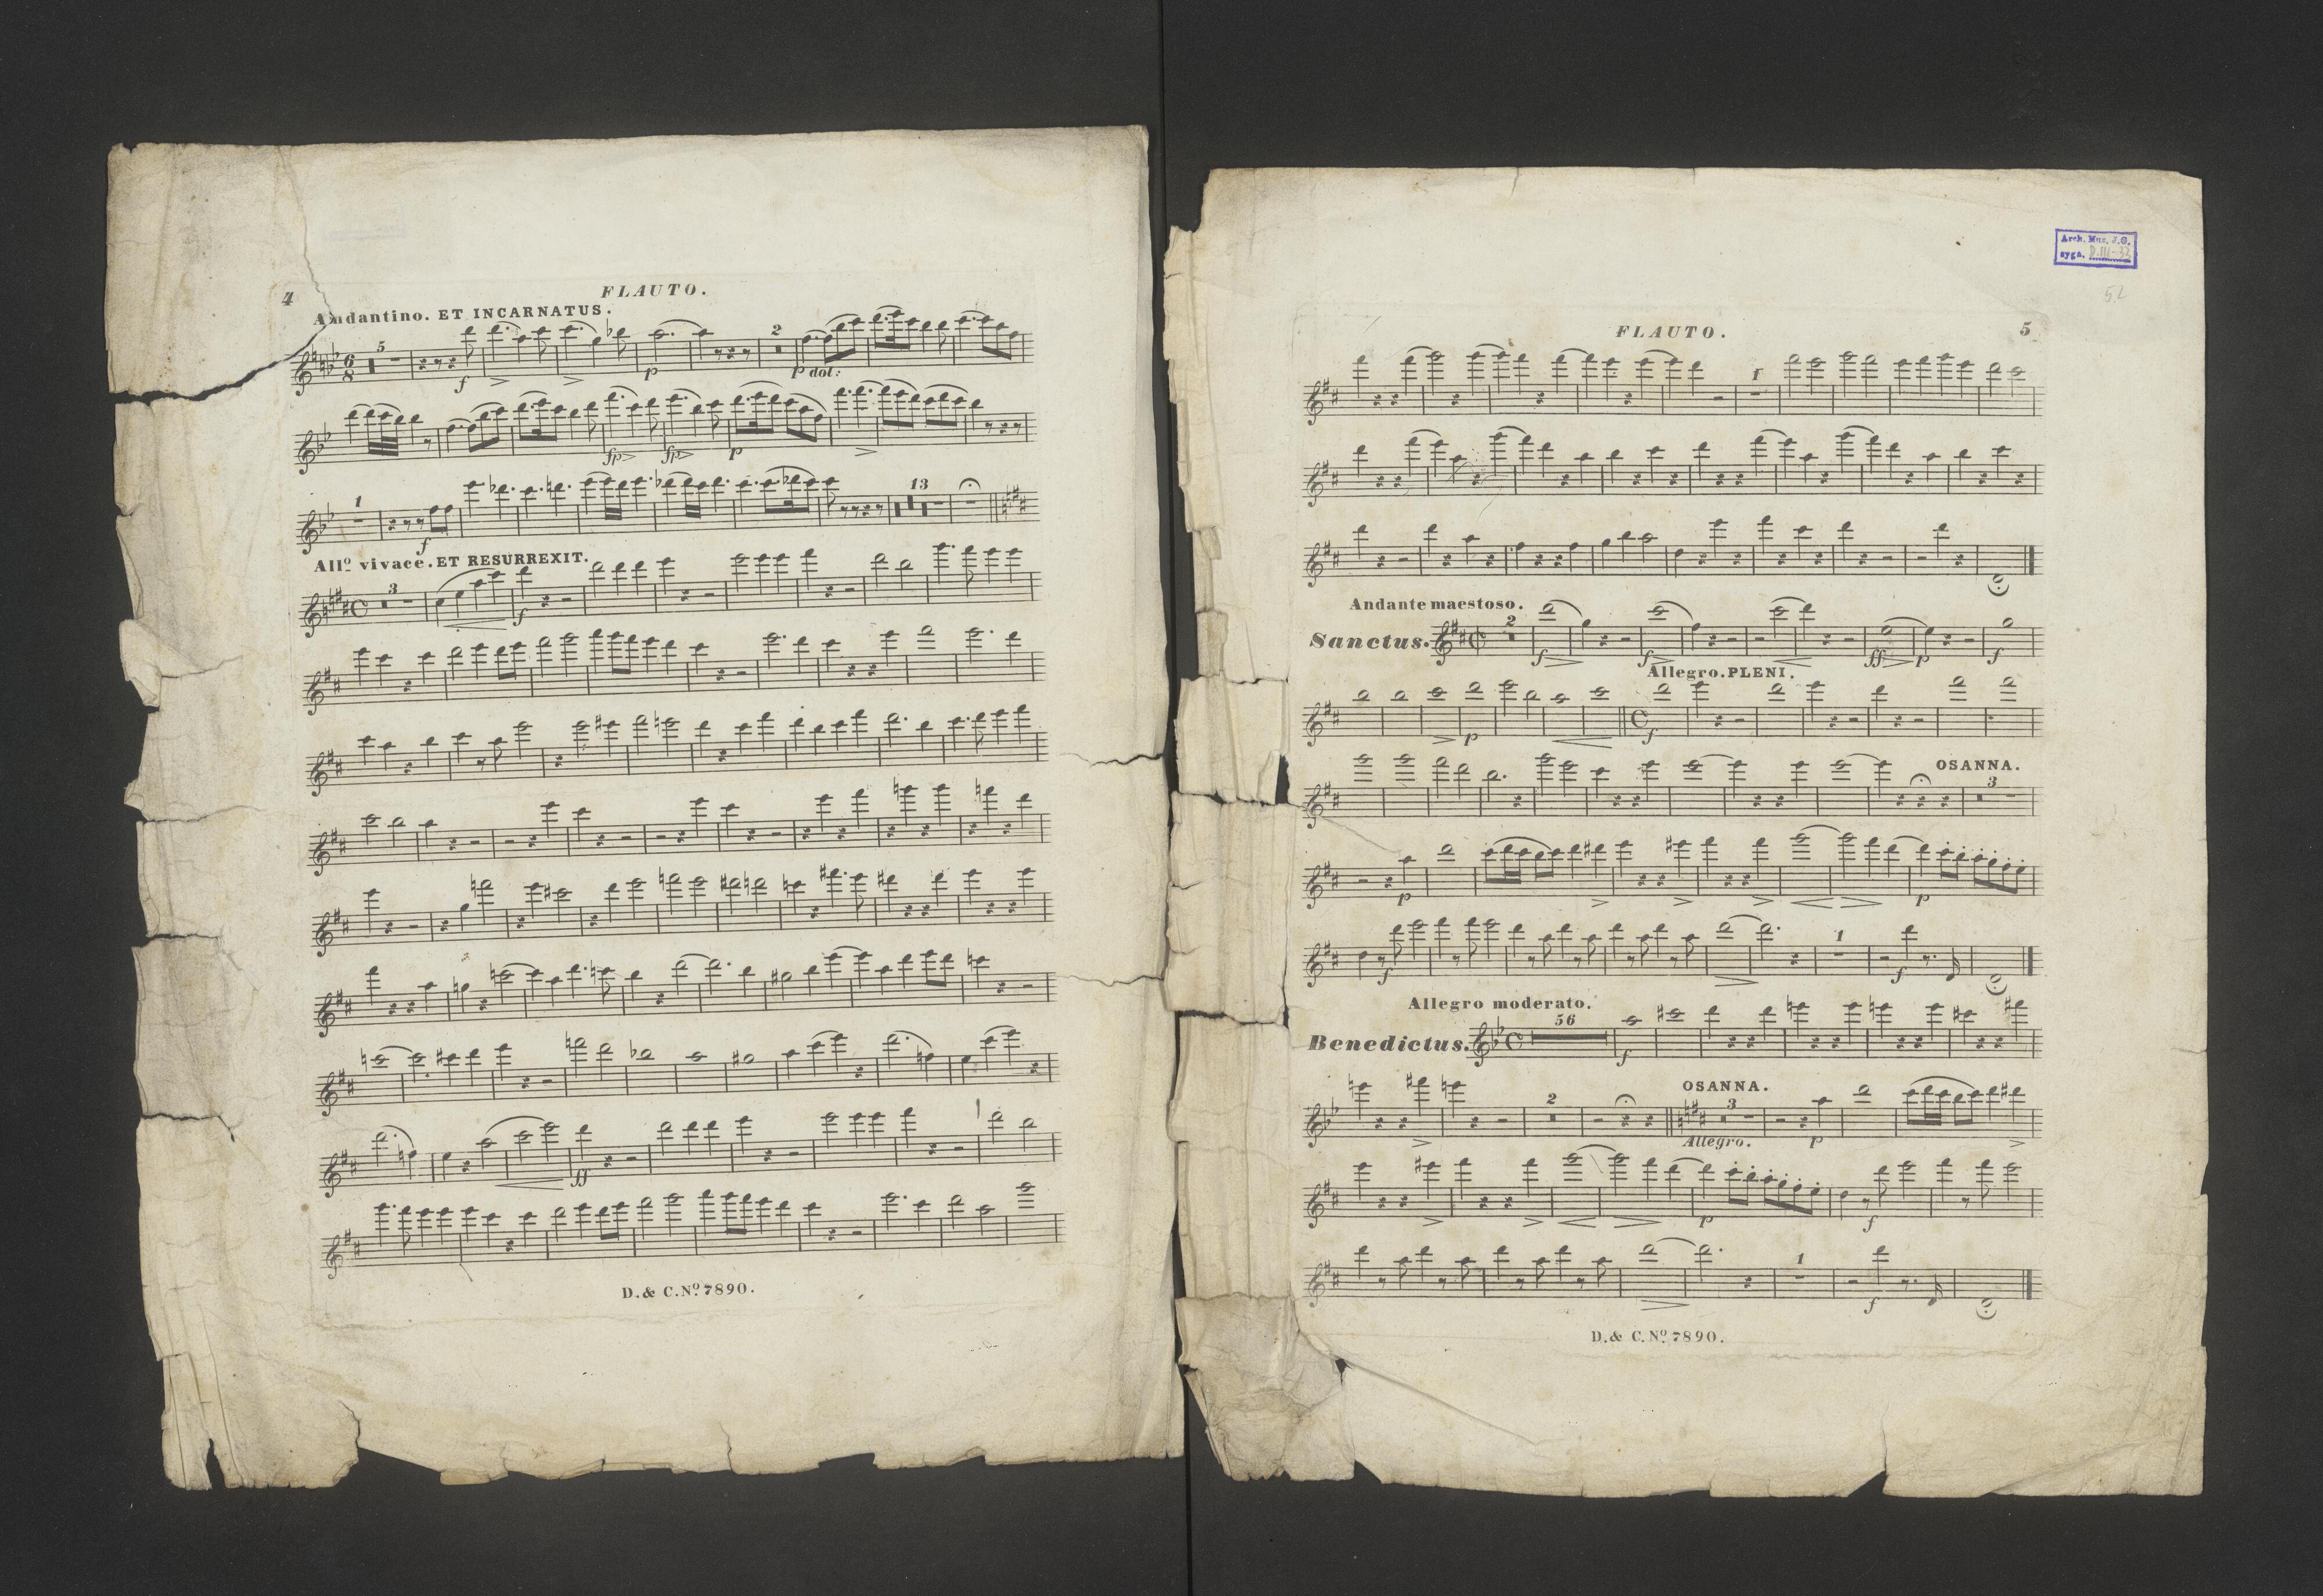 4
FLAUTO.
Andantino. ET INCARNATUS.
5
2
f
p
p dol:
fp
fp
p
1
13
f
All.º vivace. ET RESURREXIT.
3
f
ff
D. & C. N.º 7890.
Arch. Muz. J.G.
sygn. D.III-32
52
FLAUTO.
5
1
Andante maestoso.
Sanctus.
2
f
f
ff
p
f
Allegro. PLENI.
p
f
OSANNA.
3
p
p
1
f
f
Allegro moderato.
Benedictus.
56
f
OSANNA.
2
3
Allegro.
p
p
f
1
f
D. & C. N.º 7890.